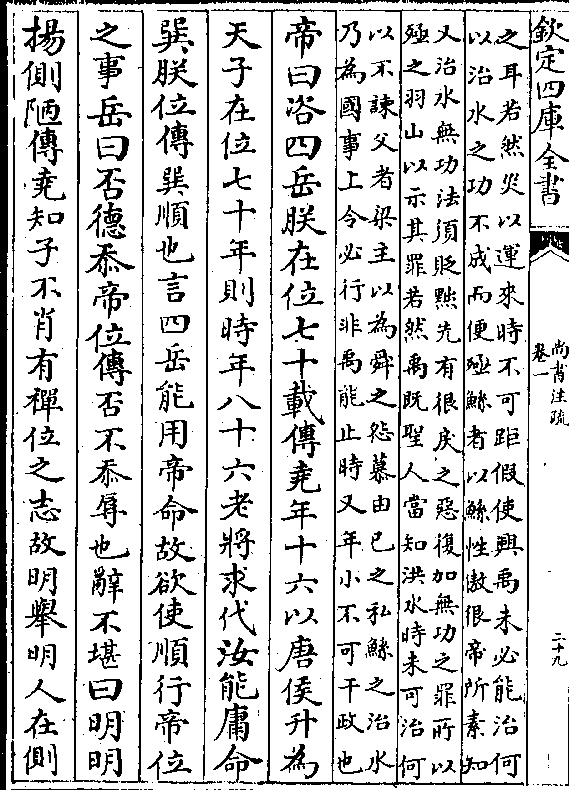 欽定四庫全書
尚書注疏
卷一
二十九
之耳若然災以運來時不可距假使興禹未必能治何
以治水之功不成而便殛鯀者以鯀性傲很帝所素知
又治水無功法須貶黜先有很戾之惡復加無功之罪所以
殛之羽山以示其罪若然禹既聖人當知洪水時未可治何
以不諫父者梁主以為舜之怨慕由己之私鯀之治水
乃為國事上令必行非禹能止時又年小不可干政也
帝曰咨四岳朕在位七十載傳堯年十六以唐侯升為
天子在位七十年則時年八十六老將求代汝能庸命
巽朕位傳巽順也言四岳能用帝命故欲使順行帝位
之事岳曰否德忝帝位傳否不忝辱也辭不堪曰明明
揚側陋傳堯知子不肖有禪位之志故明舉明人在側